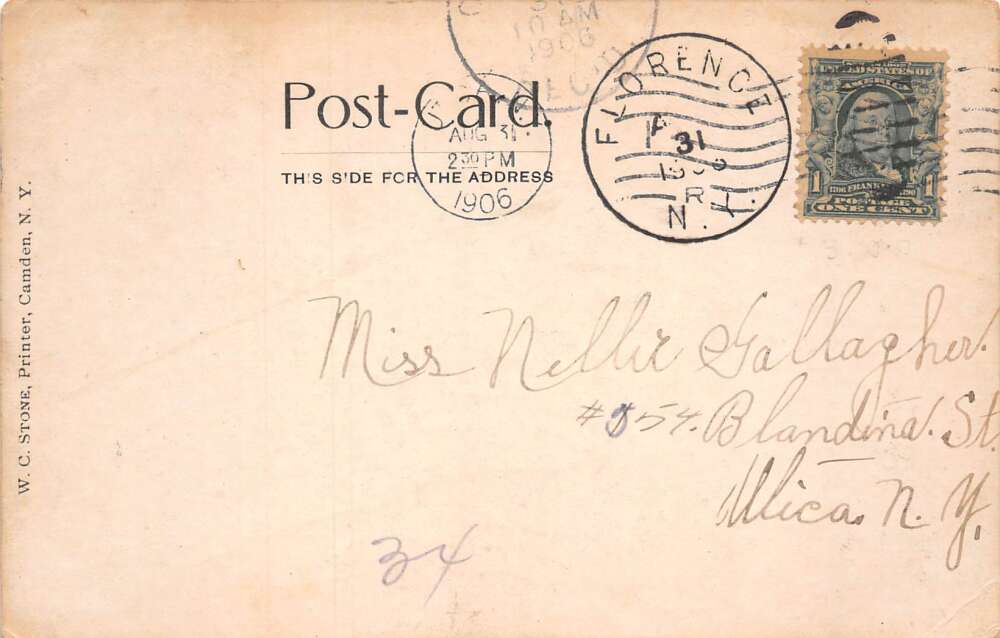 10 AM
1906
Post-Card.
AUG 31
2 30 PM
1906
THIS SIDE FOR THE ADDRESS
FLORENCE
31
R
N.Y.
UNITED STATES OF
AMERICA
1 FRANKLIN 1
POSTAGE
ONE CENT
W. C. STONE, Printer, Camden, N. Y.
Miss Nellie Gallagher.
#54. Blandina. St.
Utica. N. Y.
34